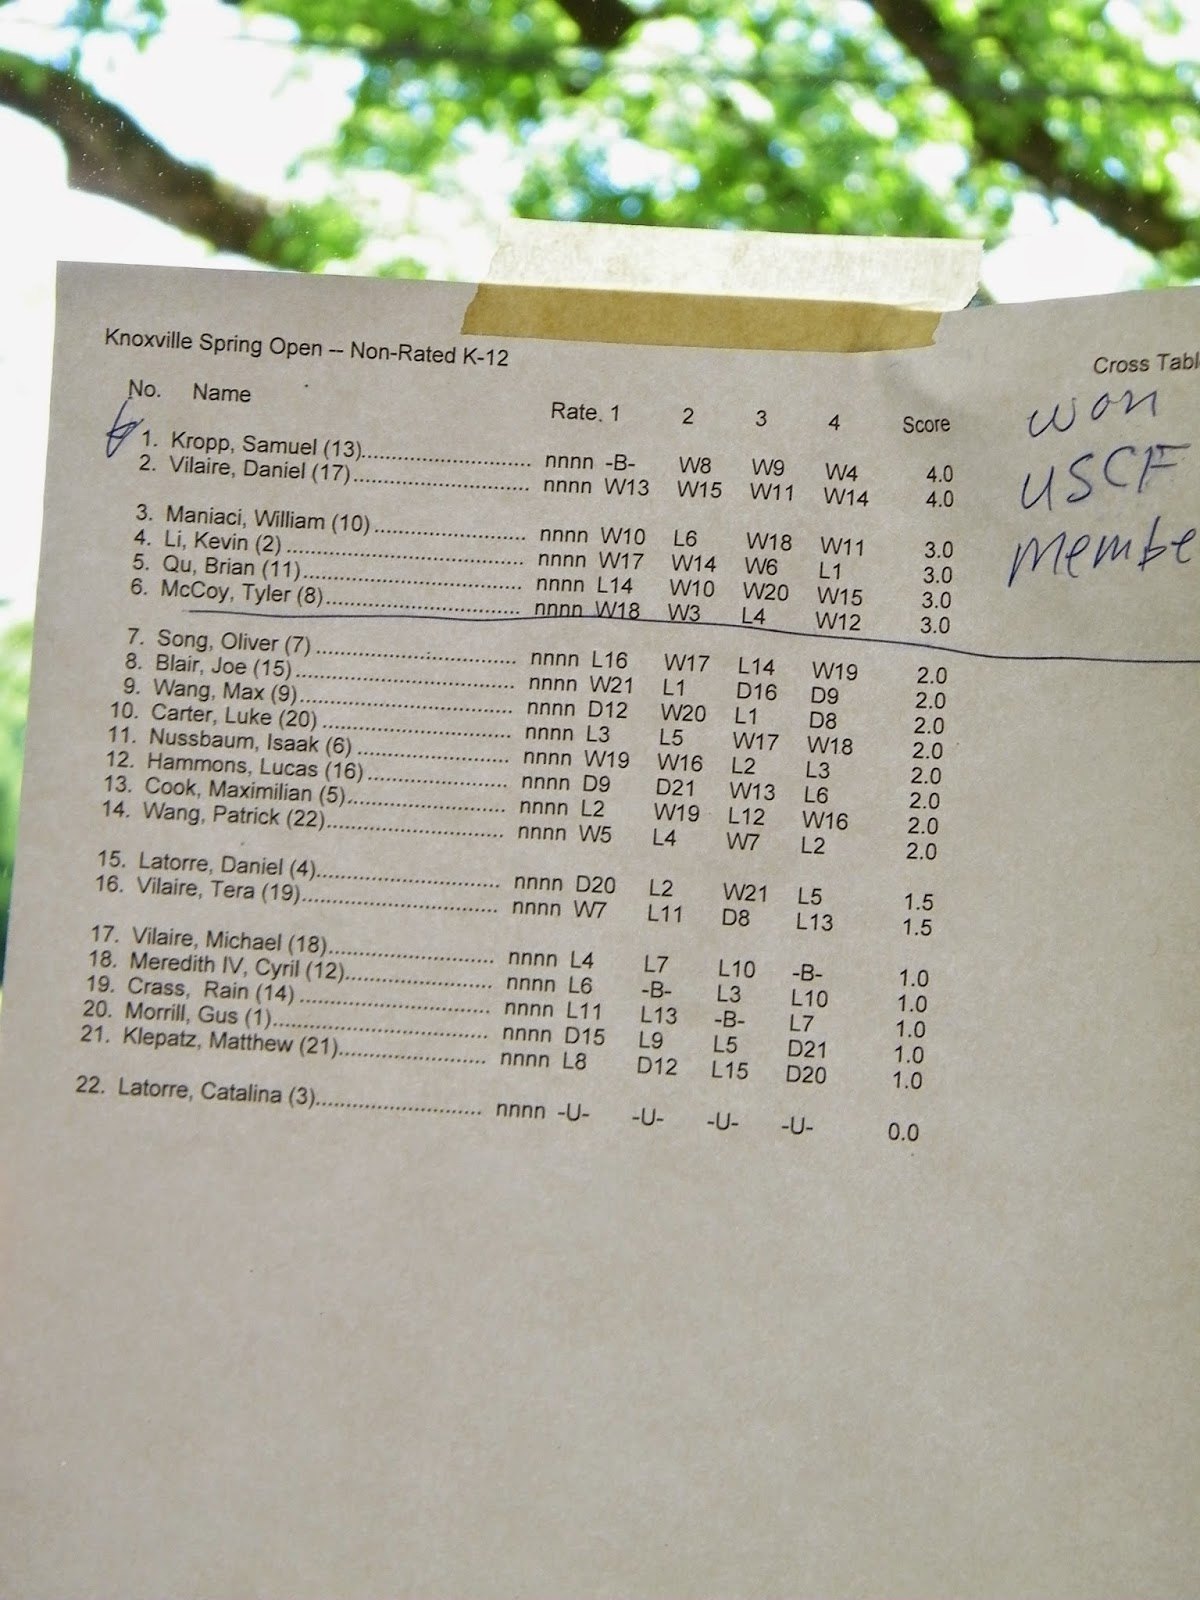 Knoxville Spring Open -- Non-Rated K-12
Cross Tabl
No. Name Rate. 1 2 3 4 Score
1. Kropp, Samuel (13)........................ nnnn -B- W8 W9 W4 4.0
2. Vilaire, Daniel (17)......................... nnnn W13 W15 W11 W14 4.0
3. Maniaci, William (10)...................... nnnn W10 L6 W18 W11 3.0
4. Li, Kevin (2)................................... nnnn W17 W14 W6 L1 3.0
5. Qu, Brian (11)................................ nnnn L14 W10 W20 W15 3.0
6. McCoy, Tyler (8)............................ nnnn W18 W3 L4 W12 3.0
7. Song, Oliver (7)............................. nnnn L16 W17 L14 W19 2.0
8. Blair, Joe (15)................................ nnnn W21 L1 D16 D9 2.0
9. Wang, Max (9)............................... nnnn D12 W20 L1 D8 2.0
10. Carter, Luke (20)........................... nnnn L3 L5 W17 W18 2.0
11. Nussbaum, Isaak (6)..................... nnnn W19 W16 L2 L3 2.0
12. Hammons, Lucas (16)................... nnnn D9 D21 W13 L6 2.0
13. Cook, Maximilian (5)...................... nnnn L2 W19 L12 W16 2.0
14. Wang, Patrick (22)......................... nnnn W5 L4 W7 L2 2.0
15. Latorre, Daniel (4).......................... nnnn D20 L2 W21 L5 1.5
16. Vilaire, Tera (19)............................ nnnn W7 L11 D8 L13 1.5
17. Vilaire, Michael (18)....................... nnnn L4 L7 L10 -B- 1.0
18. Meredith IV, Cyril (12).................... nnnn L6 -B- L3 L10 1.0
19. Crass, Rain (14)............................ nnnn L11 L13 -B- L7 1.0
20. Morrill, Gus (1)............................... nnnn D15 L9 L5 D21 1.0
21. Klepatz, Matthew (21).................... nnnn L8 D12 L15 D20 1.0
22. Latorre, Catalina (3)....................... nnnn -U- -U- -U- -U- 0.0
won
USCF
membe